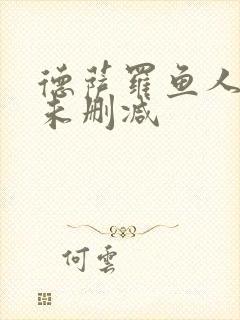 德萨罗鱼人
未删减
何云